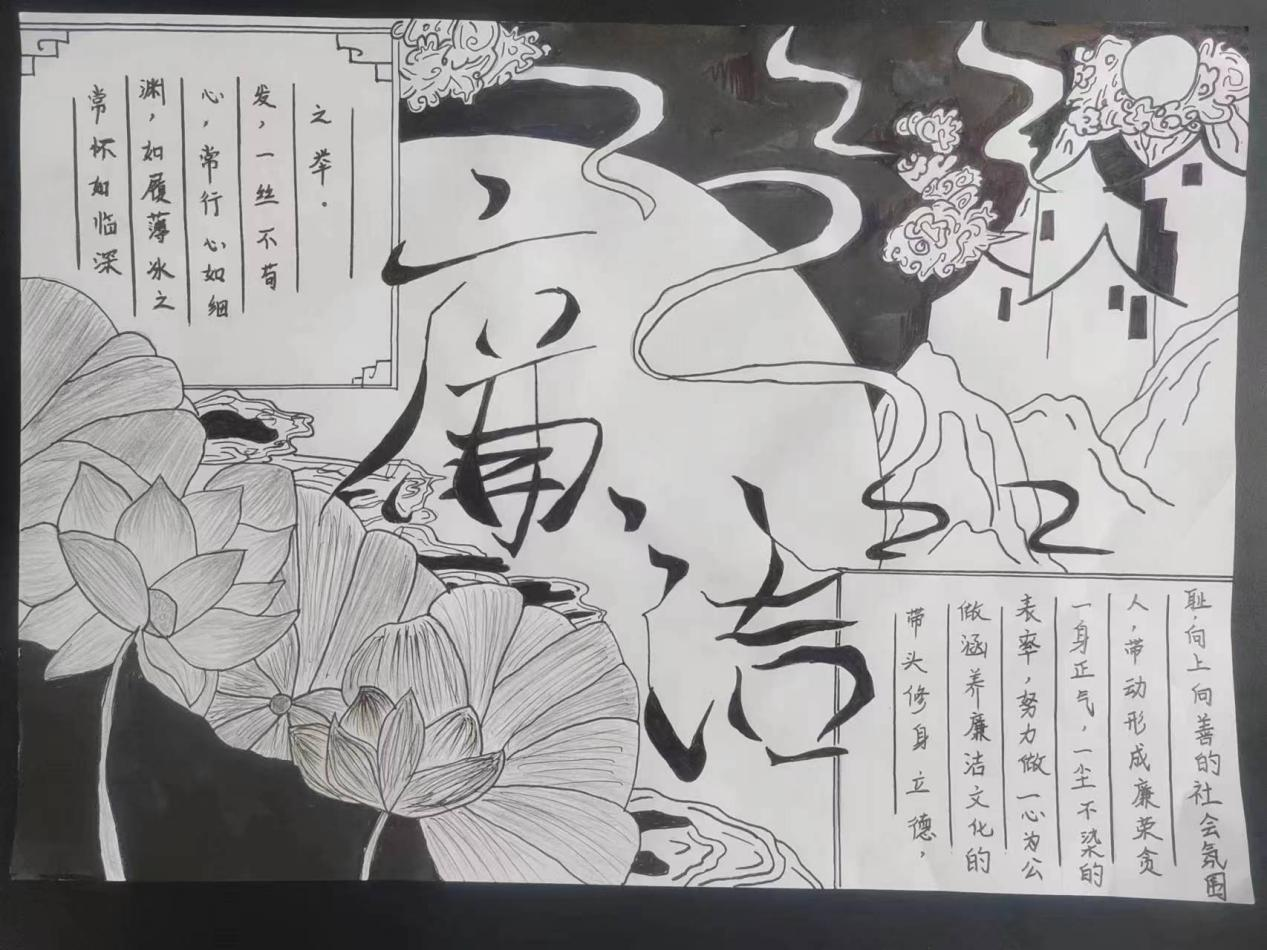 常怀如临深
渊，如履薄冰之
心，常行心如细
发，一丝不苟
之举．
廉洁
带头修身立德，
做涵养廉洁文化的
表率，努力做一心为公
一身正气，一尘不染的
人，带动形成廉荣贪
耻，向上向善的社会氛围